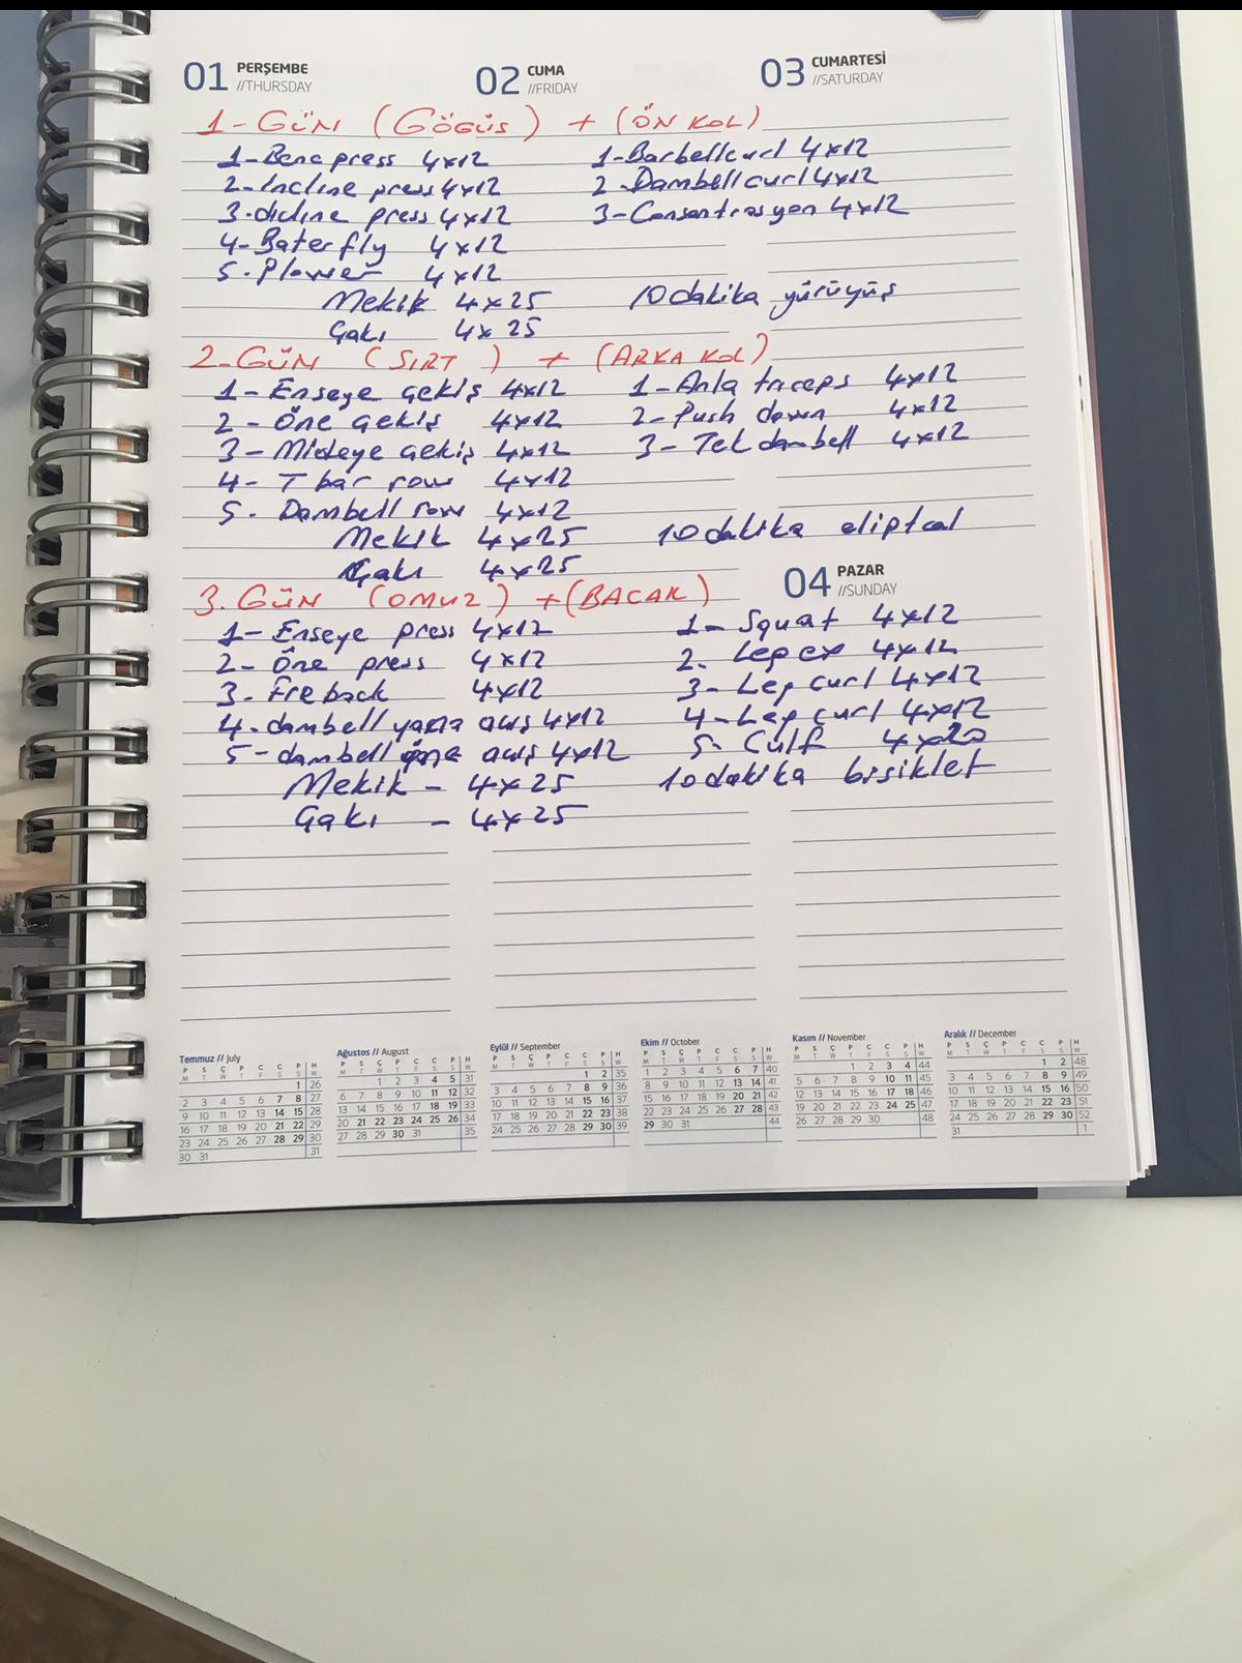 01 PERŞEMBE //THURSDAY
02 CUMA //FRIDAY
03 CUMARTESİ //SATURDAY
1-GÜN (GÖGÜS) + (ÖN KOL)
1-Benc press 4x12
2-Incline press 4x12
3-dicline press 4x12
4-Baterfly 4x12
5-Plower 4x12
Mekik 4x25
Çakı 4x25
1-Barbell curl 4x12
2-Dambell curl 4x12
3-Consantrasyon 4x12
10 dakika yürüyüş
2-GÜN (SIRT) + (ARKA KOL)
1-Enseye çekiş 4x12
2-Öne çekiş 4x12
3-Mideye çekiş 4x12
4-T bar row 4x12
5-Dambell row 4x12
Mekik 4x25
Çakı 4x25
1-Anla triceps 4x12
2-Push down 4x12
3-Tek dambell 4x12
10 dakika eliptcal
04 PAZAR //SUNDAY
3.GÜN (OMUZ) + (BACAK)
1-Enseye press 4x12
2-Öne press 4x12
3-Freback 4x12
4-dambell yana açış 4x12
5-dambell öne açış 4x12
Mekik - 4x25
Çakı - 4x25
1-Squat 4x12
2-Lep ex 4x12
3-Lep curl 4x12
4-Lep curl 4x12
5-Culf 4x20
10 dakika bisiklet
Temmuz // July
P S Ç P C C P H
M T W T F S S W
1 26
2 3 4 5 6 7 8 27
9 10 11 12 13 14 15 28
16 17 18 19 20 21 22 29
23 24 25 26 27 28 29 30
30 31 31
Ağustos // August
P S Ç P C C P H
M T W T F S S W
1 2 3 4 5 31
6 7 8 9 10 11 12 32
13 14 15 16 17 18 19 33
20 21 22 23 24 25 26 34
27 28 29 30 31 35
Eylül // September
P S Ç P C C P H
M T W T F S S W
1 2 35
3 4 5 6 7 8 9 36
10 11 12 13 14 15 16 37
17 18 19 20 21 22 23 38
24 25 26 27 28 29 30 39
Ekim // October
P S Ç P C C P H
M T W T F S S W
1 2 3 4 5 6 7 40
8 9 10 11 12 13 14 41
15 16 17 18 19 20 21 42
22 23 24 25 26 27 28 43
29 30 31 44
Kasım // November
P S Ç P C C P H
M T W T F S S W
1 2 3 4 44
5 6 7 8 9 10 11 45
12 13 14 15 16 17 18 46
19 20 21 22 23 24 25 47
26 27 28 29 30 48
Aralık // December
P S Ç P C C P H
M T W T F S S W
1 2 48
3 4 5 6 7 8 9 49
10 11 12 13 14 15 16 50
17 18 19 20 21 22 23 51
24 25 26 27 28 29 30 52
31 1